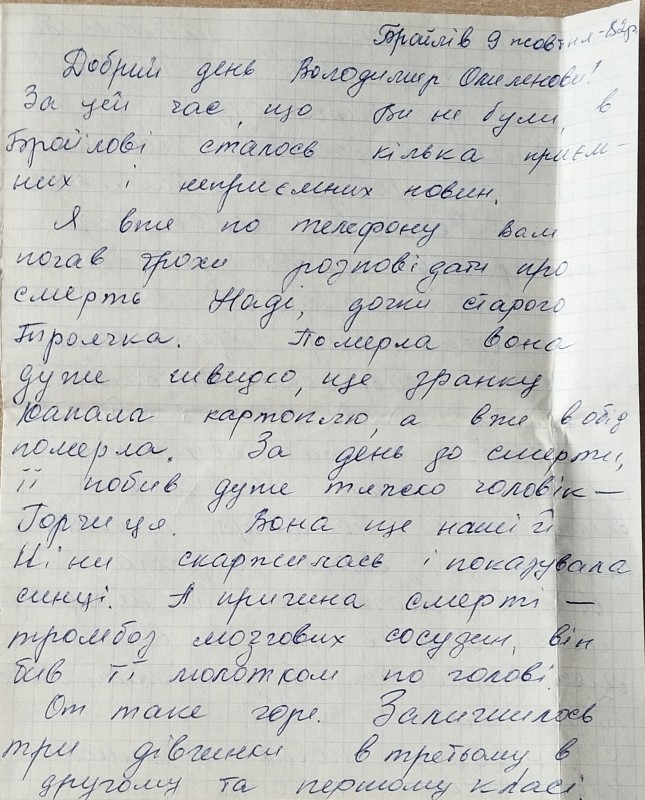 Браїлів 9 жовтня - 82р.
Добрий день Володимир Омеленови!
За цей час, що Ви не були, в
Браїлові сталось кілька приєм-
них і неприємних новин.
Я вже по телефону Вам
почав трохи розповідати про
смерть Наді, дочки старого
Тролчка. Померла вона
дуже швидко, ще зранку
копала картоплю, а вже в обід
померла. За день до смерти,
її побив дуже тяжко чоловік —
Горчиця. Вона ще нашій
Ніни скаржилась і показувала
синці. А причина смерті —
тромбоз мозгових сосудин, він
бив її молотком по голові.
От таке горе. Залишилось
три дівчинки в третьому в
другому та першому класі.